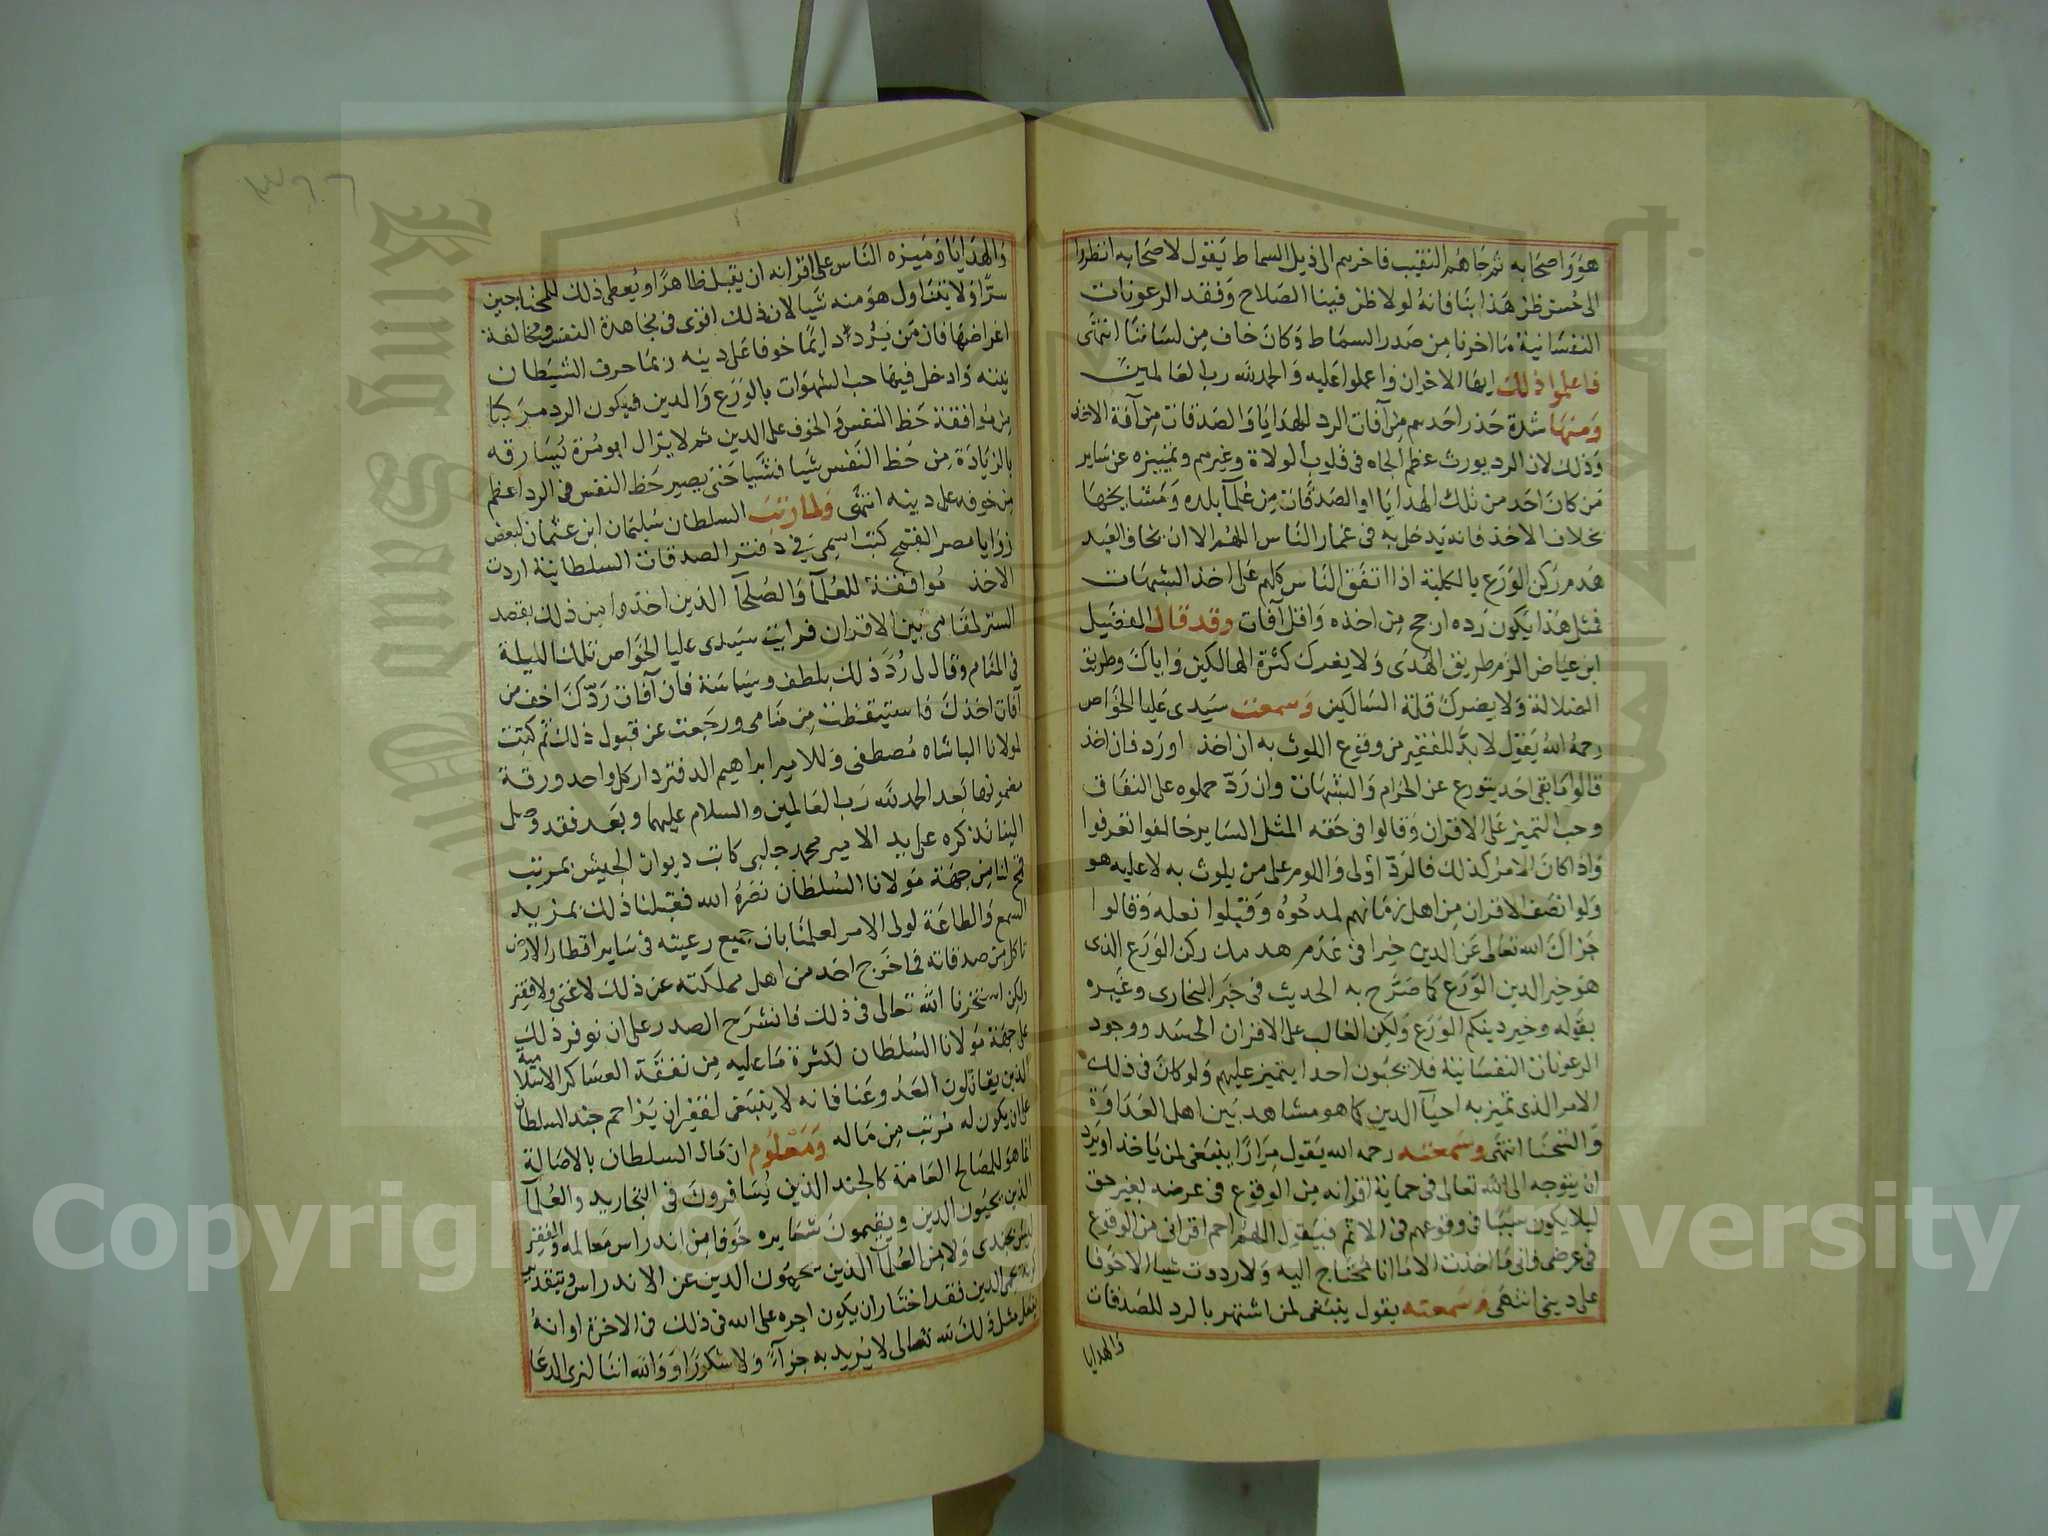 هو واصحابه ثم جاهم النقيب فاخرهم الى ذيل السماط يقول لاصحابه انظروا
الى حسن ظن هذا بنا فانه لولا ظن فينا الصلاح وفقد الرعونات
النفسانية ما اخرنا من صدر السماط وكان خاف من لساننا انتهى
فاعلموا ذلك ايها الاخوان واعملوا عليه والحمد لله رب العالمين
ومنها شدة حذر احدهم من آفات الرد للهدايا والصدقات من آفة الاخذ
وذلك لان الرد يورث عظم الجاه فى قلوب الولاة وغيرهم وتمييزه عن ساير
من كان اخذ من تلك الهدايا او الصدقات من علمآ بلده ومشايخها
بخلاف الاخذ فانه يدخل به فى غمار الناس اللهم الا ان يخاف العبد
هدم ركن الورع بالكلية اذا اتفق الناس كلهم على اخذ الشبهات
فمثل هذا يكون رده ارجح من اخذه واقل آفات وقد قال الفضيل
ابن عياض الزم طريق الهدى ولا يغرك كثرة الهالكين واياك وطريق
الضلالة ولا يضرك قلة السالكين وسمعت سيدى عليا الخواص
رحمه الله يقول لابد للفقير من وقوع اللوث به ان اخذ اورد فان اخذ
قالوا ما بقى احد يتورع عن الحرام والشبهات وان رد حملوه على النفاق
وحب التميز على الاقران وقالوا فى حقه المثل الساير خالفوا تعرفوا
واذا كان الامر كذلك فالرد اولى واللوم على من يلوث به لا عليه هو
ولو انصف الاقران من اهل زمانهم لمدحوه وقبلوا نعله وقالوا
جزاك الله تعالى عن الدين خيرا فى عدم هدمك ركن الورع الذى
هو خير الدين الورع كما صرح به الحديث فى خبر البخارى وغيره
بقوله وخير دينكم الورع ولكن الغالب على الاقران الحسد ووجود
الرعونات النفسانية فلا يحبون احدا يتميز عليهم ولو كان فى ذلك
الامر الذى تميز به احيآ الدين كما هو مشاهد بين اهل العداوة
والشحنا انتهى وسمعته رحمه الله يقول مرارا ينبغى لمن ياخذ او يرد
ان يتوجه الى الله تعالى فى حماية اقرانه من الوقوع فى عرضه بغير حق
ليلا يكون سببا فى وقوعهم فى الاثم فيقول اللهم احم اقرانى من الوقوع
فى عرضى فانى ما اخذت الا ما انا محتاج اليه ولا رددت شيا الا خوفا
على دينى انتهى وسمعته يقول ينبغى لمن اشتهر بالرد للصدقات
والهدايا
والهدايا وميزه الناس على اقرانه ان يقبل ظاهرا ويعطى ذلك للمحتاجين
سرا ولا يتناول هو منه شيا لان ذلك اقوى فى مجاهدة النفس ومخالفة
اغراضها فان من يرد دايما خوفا على دينه ربما حرف الشيطان
نيته وادخل فيها حب الشهوات بالورع والدين فيكون الرد مركبا
من موافقة حظ النفس والخوف على الدين ثم لا يزال ابو مرة يسارقه
بالزيادة من حظ النفس شيا فشيا حتى يصير حظ النفس فى الرد اعظم
من خوفه على دينه انتهى ولما رتب السلطان سليمان ابن عثمان لبعض
زوايا مصر القمح كتب اسمى فى دفتر الصدقات السلطانية اردت
الاخذ موافقة للعلمآ والصلحآ الذين اخذوا من ذلك بقصد
الستر لمقامى بين الاقران فرايت سيدى عليا الخواص تلك الليلة
فى المنام وقال لى رد ذلك بلطف وسياسة فان آفات ردك اخف من
آفات اخذك فاستيقظت من منامى ورجعت عن قبول ذلك ثم كتبت
لمولانا الباشاه مصطفى وللامير ابراهيم الدفتردار كل واحد ورقة
مضمونها بعد الحمد لله رب العالمين والسلام عليهما وبعد فقد وصل
الينا تذكره على يد الامير محمد جلبى كاتب ديوان الجيش بمرتب
قمح لنا من جهة مولانا السلطان نصره الله فقبلنا ذلك بمزيد
السمع والطاعة لولى الامر لعلمنا بان جميع رعيته فى ساير اقطار الارض
تاكل من صدقاته فما خرج احد من اهل مملكته عن ذلك لا غنى ولا فقير
ولكن استخرنا الله تعالى فى ذلك فانشرح الصدر على ان نوفر ذلك
على جهة مولانا السلطان لكثرة ما عليه من نفقة العساكر الاسلامية
الذين يقاتلون العدو عنا فانه لا ينبغى لفقير ان يزاحم جند السلطان
على ان يكون له مرتب من ماله ومعلوم ان مال السلطان بالاصالة
انما هو للمصالح العامة كالجند الذين يسافرون فى التجاريد والعلمآ
الذين يحيون الدين ويقيمون شعايره خوفا من اندراس معالمه والفقير
ليس بجندى ولا من العلمآ الذين يحمون الدين عن الاندراس وبتقدير
الدين فقد اختار ان يكون اجره على الله فى ذلك فى الاخرة اوانه
يفعل مثل ذلك لله تعالى لا يريد به جزآء ولا شكورا ووالله اننا لنرى الدعا